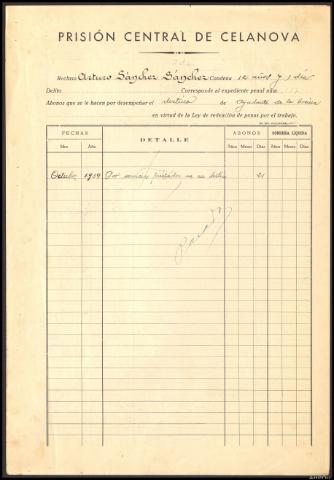 PRISIÓN CENTRAL DE CELANOVA
Recluso Arturo Sánchez Sánchez Condena 12 años y 1 día
Delito Corresponde al expediente penal núm.
Abonos que se le hacen por desempeñar el destino de Ayudante de la
en virtud de la Ley de redención de penas por el trabajo.
FECHAS DETALLE ABONOS CONDENA LÍQUIDA
Mes Año Años Meses Días Años Meses Días
Octubre Por servicios prestados en su destino 21